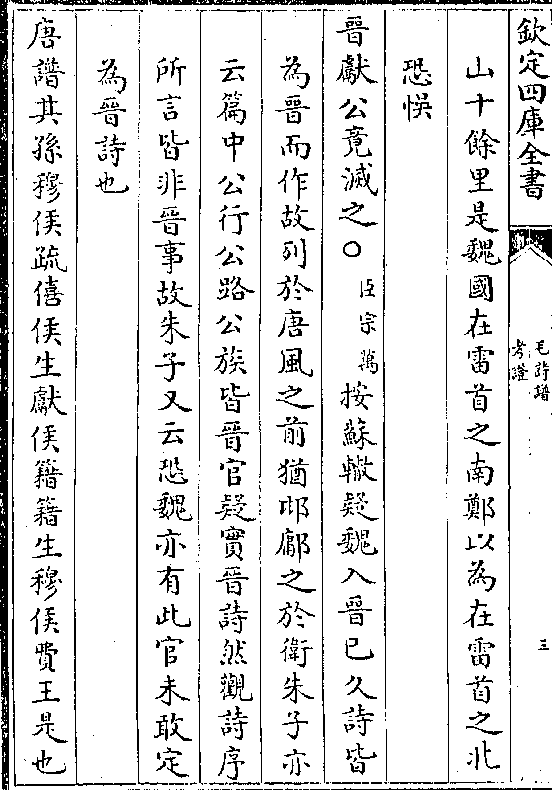 欽定四庫全書
毛詩譜
考證
三
山十餘里是魏國在雷首之南鄭以為在雷首之北
恐悮
晉獻公竟滅之〇臣宗萬按蘇轍疑魏入晉已久詩皆
為晉而作故列於唐風之前猶邶鄘之於衛朱子亦
云篇中公行公路公族皆晉官疑實晉詩然觀詩序
所言皆非晉事故朱子又云恐魏亦有此官未敢定
為晉詩也
唐譜其孫穆侯疏僖侯生獻侯籍籍生穆侯費王是也